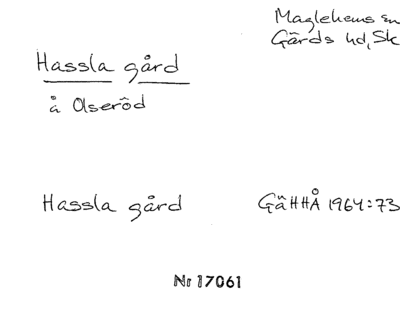 Maglehems sn
Gärds hd, Sk
Hassla gård
å Olseröd
Hassla gård
GäHHÅ 1964:73
Nr 17061